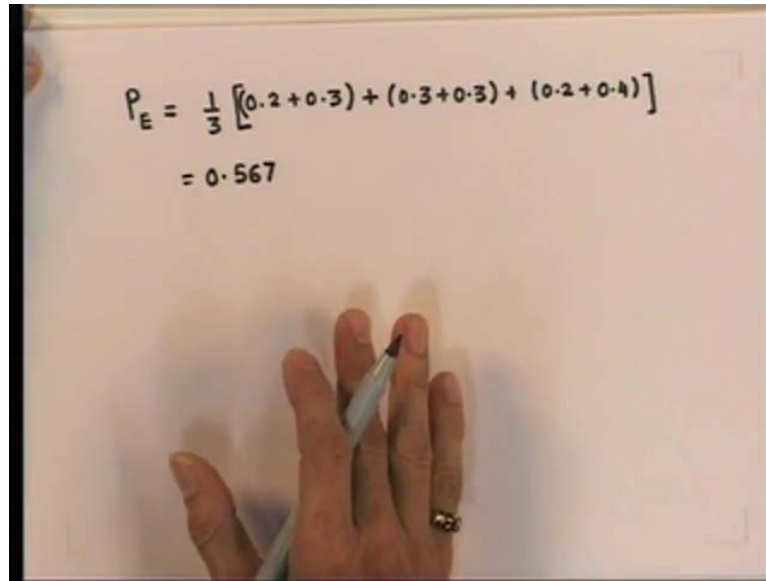 P_E = 1/3 [(0.2+0.3) + (0.3+0.3) + (0.2+0.4)]
= 0.567